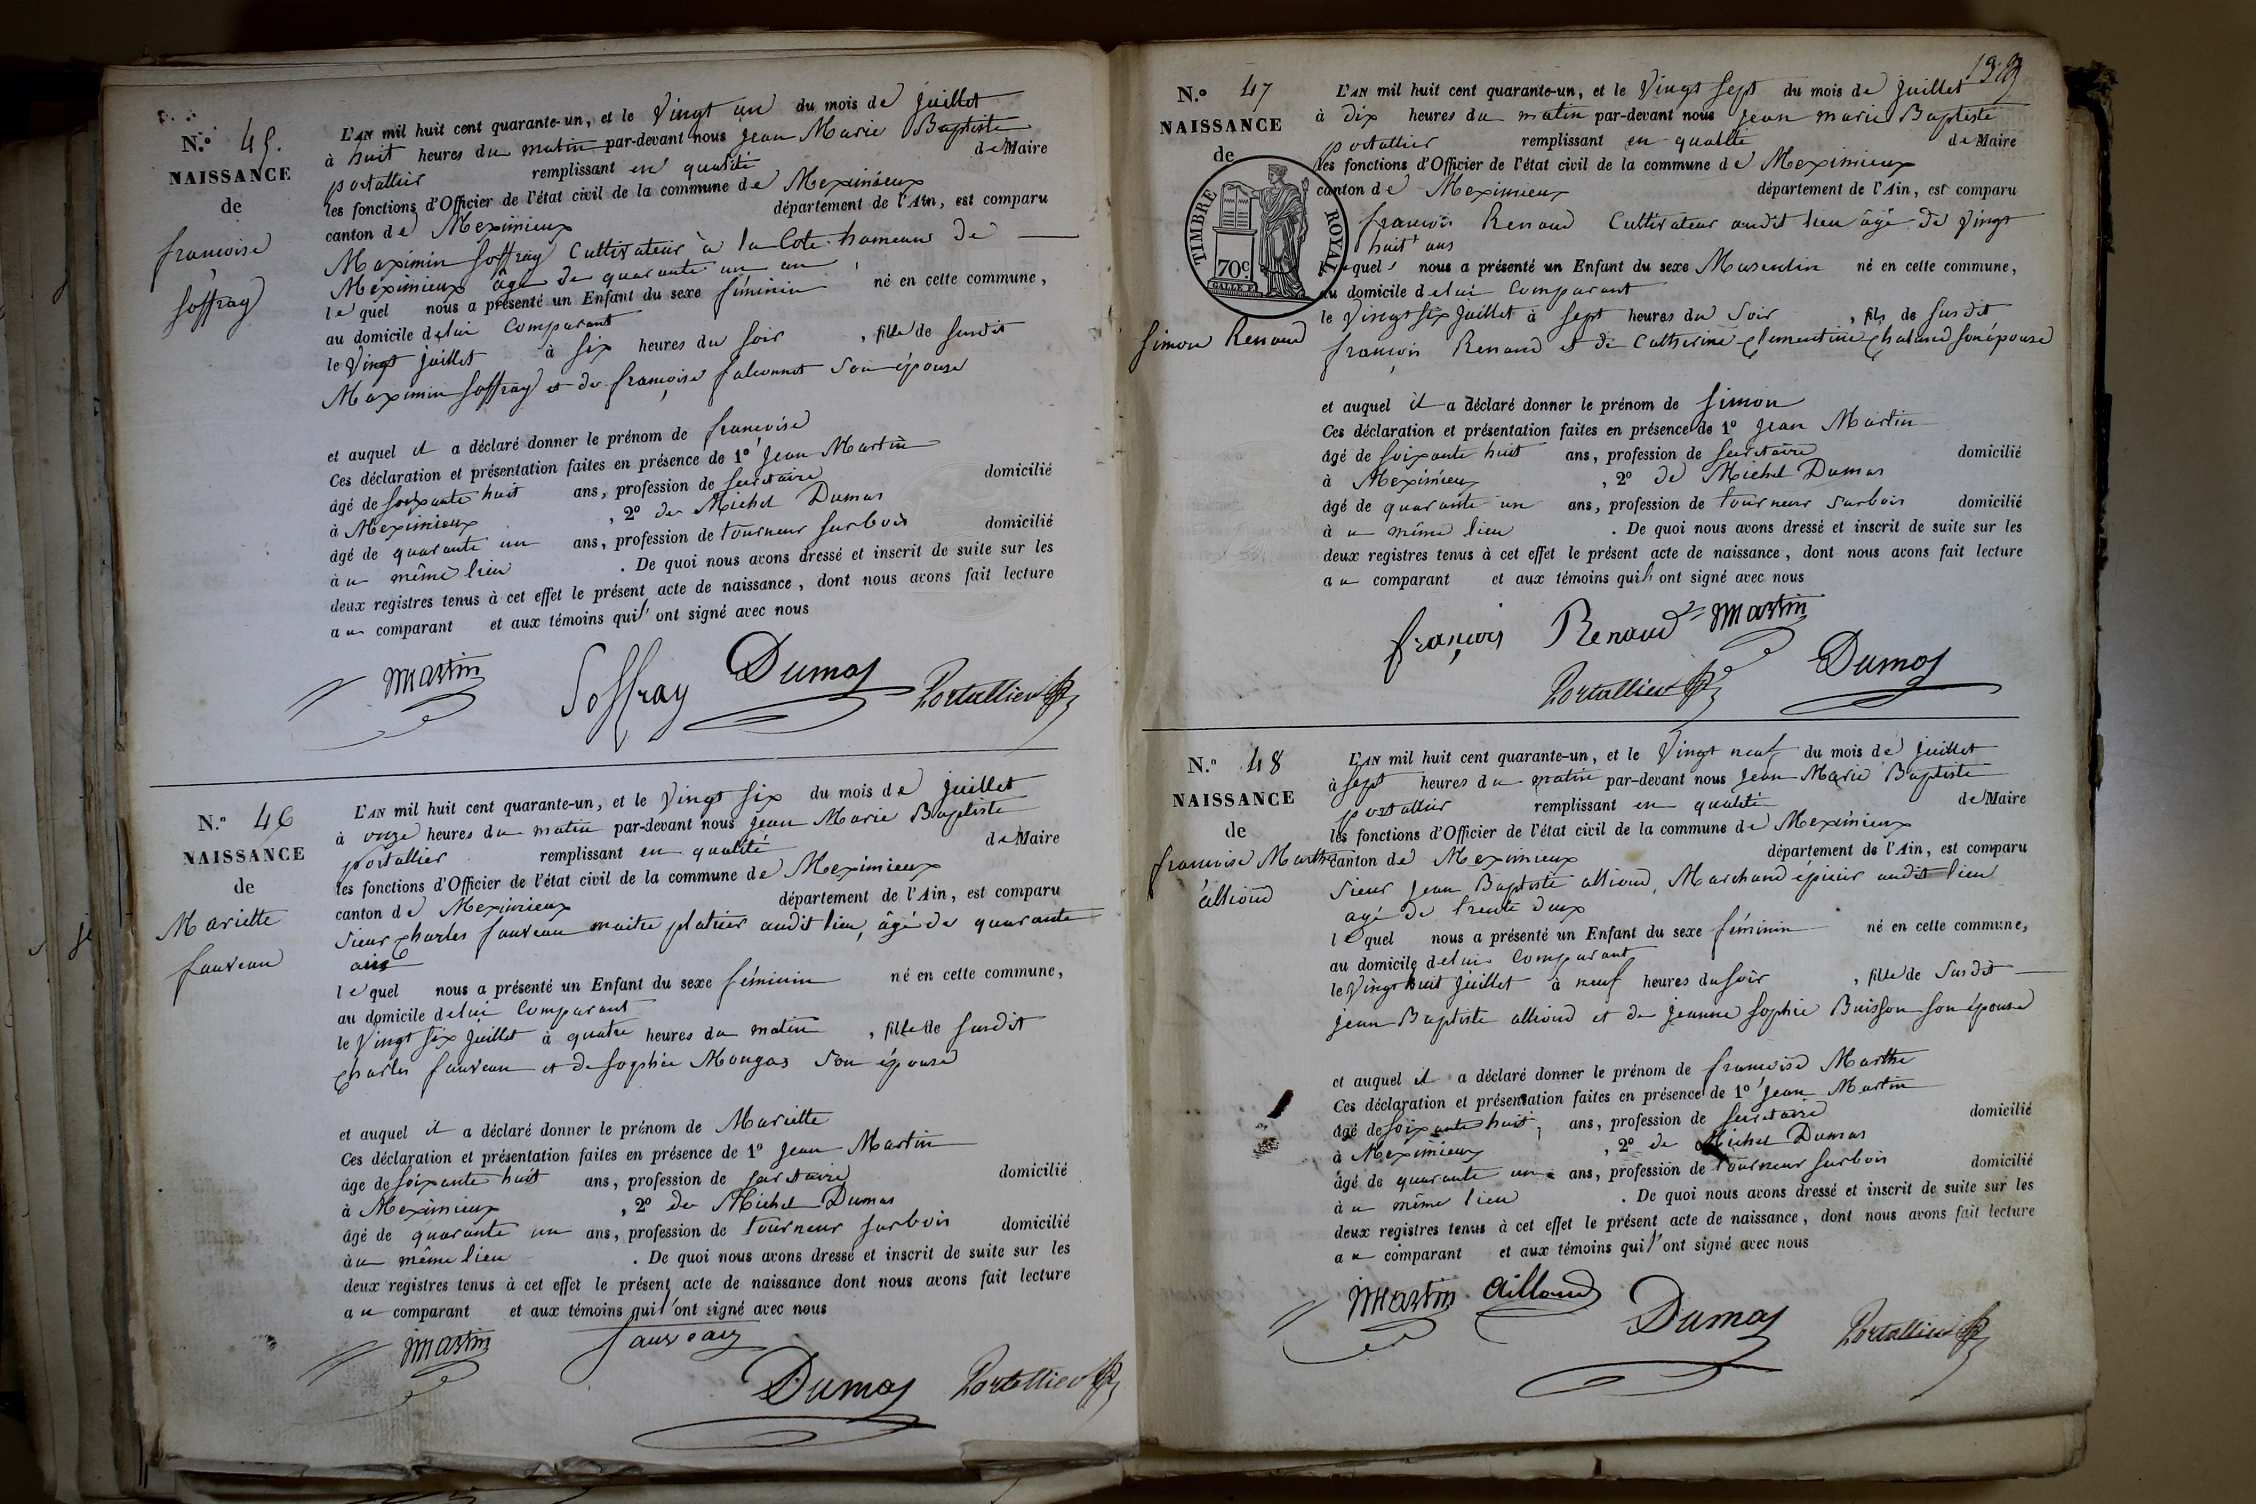 N.° 45.
NAISSANCE
de
françoise
Soffray
L'AN mil huit cent quarante-un, et le Vingt un du mois de juillet
à huit heures du matin par-devant nous Jean Marie Baptiste
portallier remplissant en qualité de Maire
les fonctions d'Officier de l'état civil de la commune de Meximieux
canton de Meximieux département de l'Ain, est comparu
Maximin Soffray Cultivateur à la Cote hameau de
Meximieux âgé de quarante un an
lequel nous a présenté un Enfant du sexe féminin né en cette commune,
au domicile delui Comparant
le Vingt juillet à Six heures du Soir , fille de Susdit
Maximin Soffray et de françoise falconnet Son épouse
et auquel il a déclaré donner le prénom de françoise
Ces déclaration et présentation faites en présence de 1° Jean Martin
âgé de Soixante huit ans, profession de Secretaire domicilié
à Meximieux , 2° de Michel Dumas
âgé de quarante un ans, profession de tourneur Surbois domicilié
à u même lieu . De quoi nous avons dressé et inscrit de suite sur les
deux registres tenus à cet effet le présent acte de naissance, dont nous avons fait lecture
a u comparant et aux témoins qui l'ont signé avec nous
Martin Soffray Dumas Portallier
N.° 46
NAISSANCE
de
Mariette
fauveau
L'AN mil huit cent quarante-un, et le Vingt Six du mois de juillet
à onze heures du matin par-devant nous Jean Marie Baptiste
portallier remplissant en qualité de Maire
les fonctions d'Officier de l'état civil de la commune de Meximieux
canton de Meximieux département de l'Ain, est comparu
Sieur Charles fauveau maitre platrier audit lieu, âgé de quarante
ans
lequel nous a présenté un Enfant du sexe féminin né en cette commune,
au domicile delui Comparant
le Vingt Six juillet à quatre heures du matin , fille de Susdit
Charles fauveau et de Sophie Mongas Son épouse
et auquel il a déclaré donner le prénom de Mariette
Ces déclaration et présentation faites en présence de 1° Jean Martin
âgé de Soixante huit ans, profession de Secretaire domicilié
à Meximieux , 2° de Michel Dumas
âgé de quarante un ans, profession de tourneur Surbois domicilié
à u même lieu . De quoi nous avons dressé et inscrit de suite sur les
deux registres tenus à cet effet le présent acte de naissance dont nous avons fait lecture
a u comparant et aux témoins qui l'ont signé avec nous
Martin fauveau
Dumas Portallier
N.° 47
NAISSANCE
de
TIMBRE ROYAL
70c.
Simon Renaud
L'AN mil huit cent quarante-un, et le Vingt Sept du mois de juillet
à dix heures du matin par-devant nous Jean marie Baptiste
portallier remplissant en qualité de Maire
les fonctions d'Officier de l'état civil de la commune de Meximieux
canton de Meximieux département de l'Ain, est comparu
françois Renaud Cultivateur audit lieu âgé de Vingt
huit ans
lequel nous a présenté un Enfant du sexe Masculin né en cette commune,
au domicile delui Comparant
le Vingt Six juillet à Sept heures du Soir , fils de Susdit
françois Renaud et de Catherine Clementine Chaland Son épouse
et auquel il a déclaré donner le prénom de Simon
Ces déclaration et présentation faites en présence de 1° Jean Martin
âgé de Soixante huit ans, profession de Secretaire domicilié
à Meximieux , 2° de Michel Dumas
âgé de quarante un ans, profession de tourneur Surbois domicilié
à u même lieu . De quoi nous avons dressé et inscrit de suite sur les
deux registres tenus à cet effet le présent acte de naissance, dont nous avons fait lecture
a u comparant et aux témoins qui l'ont signé avec nous
françois Renaud Martin
Portallier Dumas
N.° 48
NAISSANCE
de
françoise Marthe
allioud
L'AN mil huit cent quarante-un, et le Vingt neuf du mois de juillet
à Sept heures du matin par-devant nous Jean Marie Baptiste
portallier remplissant en qualité de Maire
les fonctions d'Officier de l'état civil de la commune de Meximieux
canton de Meximieux département de l'Ain, est comparu
Sieur Jean Baptiste allioud, Marchand épicier audit lieu
agé de trente deux
lequel nous a présenté un Enfant du sexe féminin né en cette commune,
au domicile delui Comparant
le Vingt huit juillet à neuf heures du Soir , fille de Susdit
Jean Baptiste allioud et de Jeanne Sophie Buisson Son épouse
et auquel il a déclaré donner le prénom de françoise Marthe
Ces déclaration et présentation faites en présence de 1° Jean Martin
âgé de Soixante huit ans, profession de Secretaire domicilié
à Meximieux , 2° de Michel Dumas
âgé de quarante un ans, profession de tourneur Surbois domicilié
à u même lieu . De quoi nous avons dressé et inscrit de suite sur les
deux registres tenus à cet effet le présent acte de naissance, dont nous avons fait lecture
a u comparant et aux témoins qui l'ont signé avec nous
Martin Ailloud Dumas Portallier